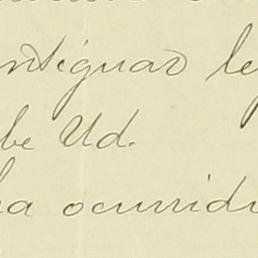 ntiguar le
be Ud.
ha ocurrid